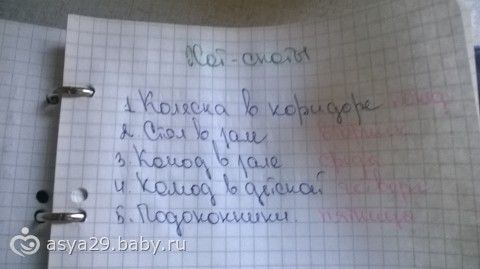 Хот-споты
1. Коляска в коридоре понед.
2. Стол в зале вторник
3. Комод в зале среда
4. Комод в детской четверг
5. Подоконники. пятница
asya29.baby.ru